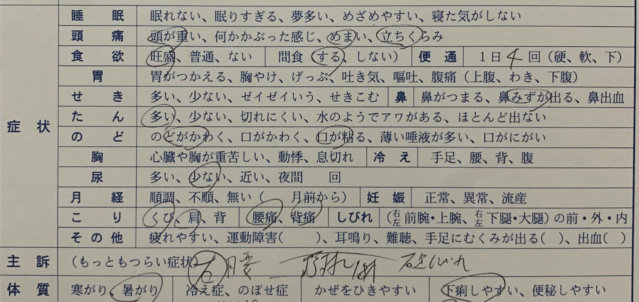 睡眠 眠れない、眠りすぎる、夢多い、めざめやすい、寝た気がしない
頭痛 頭が重い、何かかぶった感じ、めまい、立ちくらみ
食欲 旺盛、普通、ない 間食(する、しない) 便通 1日4回(硬、軟、下)
胃 胃がつかえる、胸やけ、げっぷ、吐き気、嘔吐、腹痛(上腹、わき、下腹)
せき 多い、少ない、ゼイゼイいう、せきこむ 鼻 鼻がつまる、鼻みずが出る、鼻出血
症状 たん 多い、少ない、切れにくい、水のようでアワがある、ほとんど出ない
のど のどがかわく、口がかわく、口が粘る、薄い唾液が多い、口がにがい
胸 心臓や胸が重苦しい、動悸、息切れ 冷え 手足、腰、背、腹
尿 多い、少ない、近い、夜間 回
月経 順調、不順、無い( 月前から) 妊娠 正常、異常、流産
こり くび、肩、背 腰痛、背痛 しびれ (右左前腕・上腕、右左下腿・大腿)の前・外・内
その他 疲れやすい、運動障害( )、耳鳴り、難聴、手足にむくみが出る( )、出血( )
主訴 (もっともつらい症状) 右腰
体質 寒がり、暑がり 冷え症、のぼせ症 かぜをひきやすい 下痢しやすい、便秘しやすい